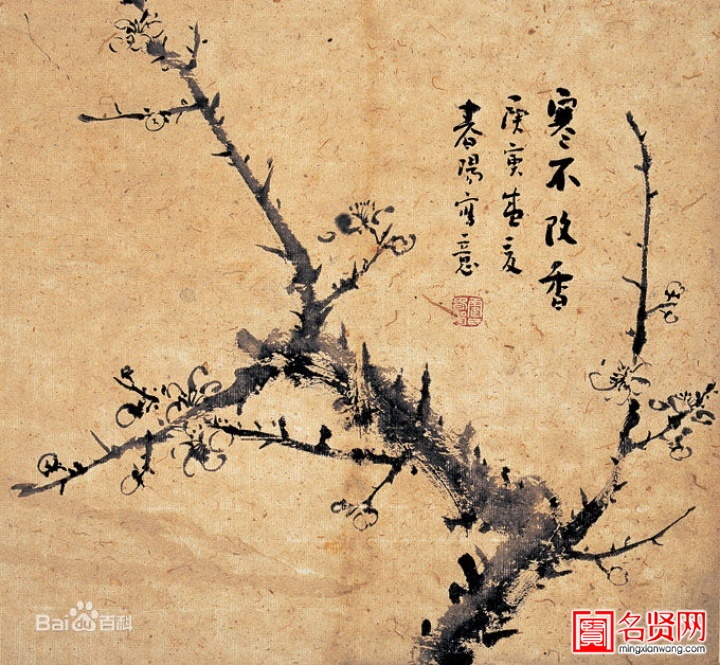 寒不改香
庚寅夏
春陽寫意
Bai百科
名贤网
mingxianwang.com